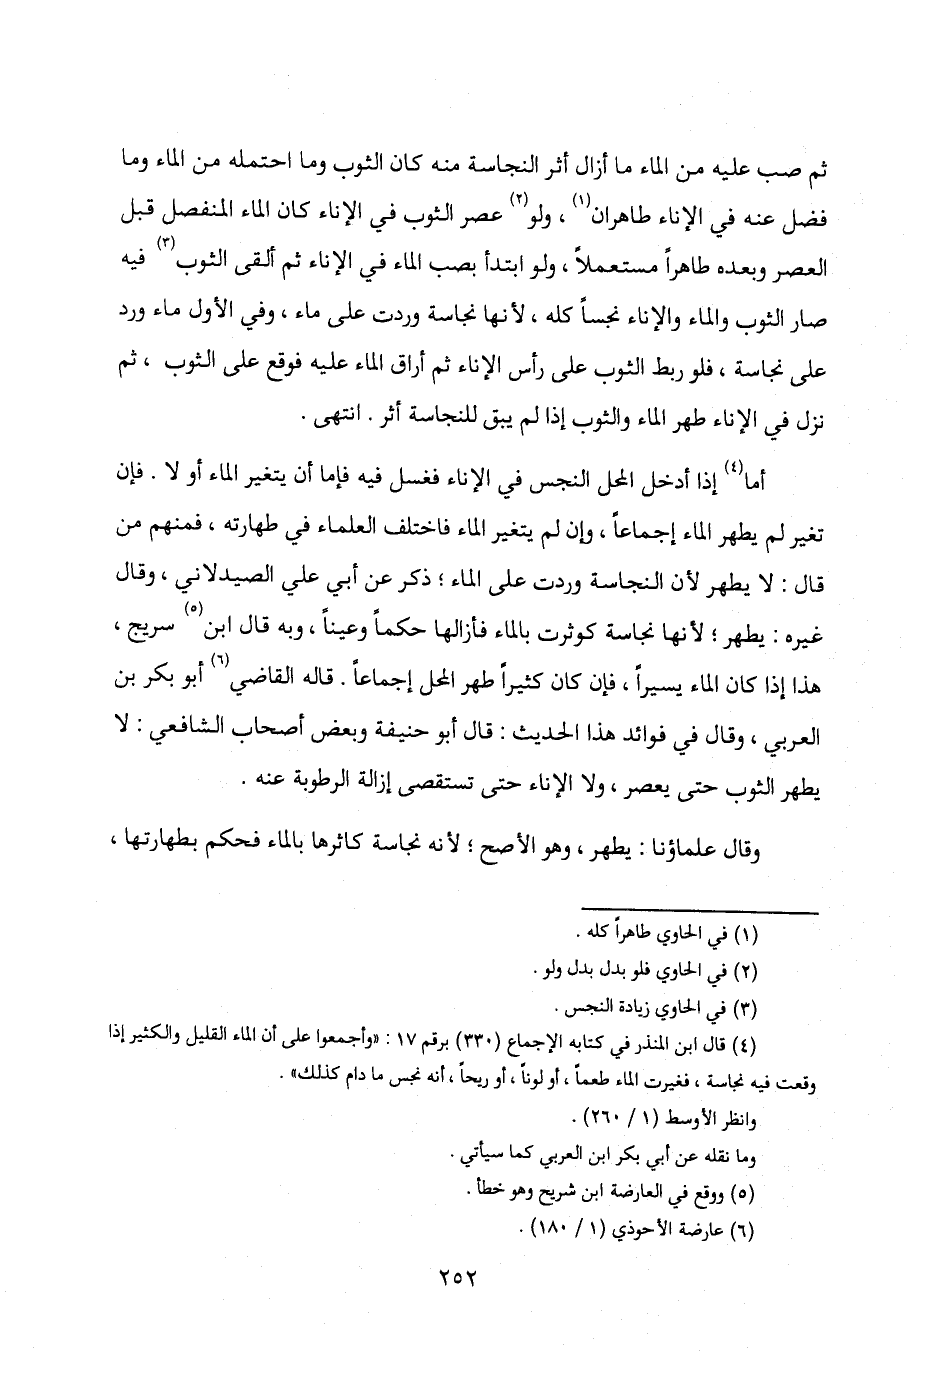 ثم صب عليه من الماء ما أزال أثر النجاسة منه كان الثوب وما احتمله من الماء وما
فضل عنه في الإناء طاهران(١) ، ولو(٢) عصر الثوب في الإناء كان الماء المنفصل قبل
العصر وبعده طاهراً مستعملاً ، ولو ابتدأ بصب الماء في الإناء ثم ألقى الثوب(٣) فيه
صار الثوب والماء والإناء نجساً كله ، لأنها نجاسة وردت على ماء ، وفي الأول ماء ورد
على نجاسة ، فلو ربط الثوب على رأس الإناء ثم أراق الماء عليه فوقع على الثوب ، ثم
نزل في الإناء طهر الماء والثوب إذا لم يبق للنجاسة أثر . انتهى .
أما(٤) إذا أدخل المحل النجس في الإناء فغسل فيه فإما أن يتغير الماء أو لا . فإن
تغير لم يطهر الماء إجماعاً ، وإن لم يتغير الماء فاختلف العلماء في طهارته ، فمنهم من
قال : لا يطهر لأن النجاسة وردت على الماء ؛ ذكر عن أبي علي الصيدلاني ، وقال
غيره : يطهر ؛ لأنها نجاسة كوثرت بالماء فأزالها حكماً وعيناً ، وبه قال ابن(٥) سريج ،
هذا إذا كان الماء يسيراً ، فإن كان كثيراً طهر المحل إجماعاً . قاله القاضي(٦) أبو بكر بن
العربي ، وقال في فوائد هذا الحديث : قال أبو حنيفة وبعض أصحاب الشافعي : لا
يطهر الثوب حتى يعصر ، ولا الإناء حتى تستقصى إزالة الرطوبة عنه .
وقال علماؤنا : يطهر ، وهو الأصح ؛ لأنه نجاسة كاثرها بالماء فحكم بطهارتها ،
(١) في الحاوي طاهراً كله .
(٢) في الحاوي فلو بدل بدل ولو .
(٣) في الحاوي زيادة النجس .
(٤) قال ابن المنذر في كتابه الإجماع (٣٣٠) برقم ١٧ : «وأجمعوا على أن الماء القليل والكثير إذا
وقعت فيه نجاسة ، فغيرت الماء طعماً ، أو لوناً ، أو ريحاً ، أنه نجس ما دام كذلك» .
وانظر الأوسط (١ / ٢٦٠) .
وما نقله عن أبي بكر ابن العربي كما سيأتي .
(٥) ووقع في العارضة ابن شريح وهو خطأ .
(٦) عارضة الأحوذي (١ / ١٨٠) .
٢٥٢